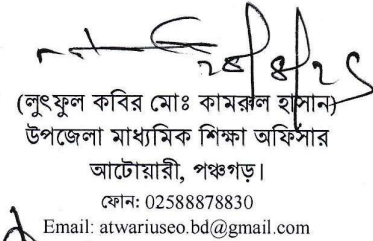 (লুৎফুল কবির মোঃ কামরুল হাসান)
উপজেলা মাধ্যমিক শিক্ষা অফিসার
আটোয়ারী, পঞ্চগড়।
ফোন: 02588878830
Email: atwariuseo.bd@gmail.com